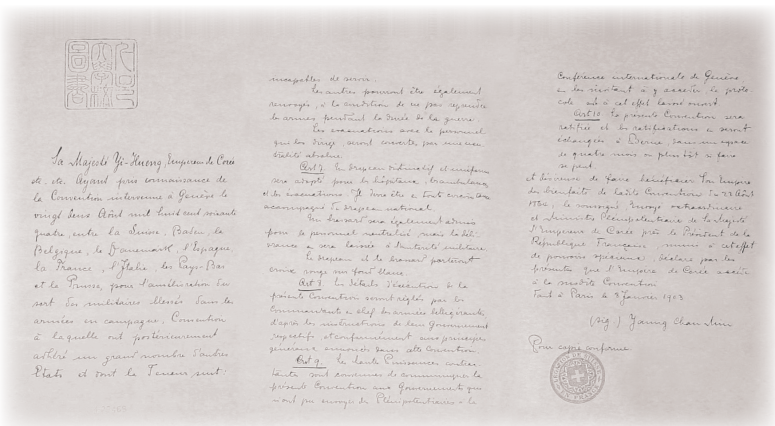 Sa Majesté Yi-Hieong, Empereur de Corée
etc. etc. Ayant pris connaissance de
la Convention intervenue à Genève le
vingt deux Août mil huit cent soixante
quatre, entre la Suisse, Baden, la
Belgique, le Danemark, l'Espagne,
la France, l'Italie, les Pays-Bas
et la Prusse, pour l'amélioration du
sort des militaires blessés dans les
armées en campagne, Convention
à laquelle ont postérieurement
adhéré un grand nombre d'autres
Etats et dont la Teneur suit:
incapables de servir.
Les autres pourront être également
renvoyés, à la condition de ne pas reprendre
les armes pendant la durée de la guerre.
Les évacuations avec le personnel
qui les dirige, seront couverts par une neu-
tralité absolue
Art 7. Un drapeau distinctif et uniforme
sera adopté pour les hôpitaux, ambulances
et les évacuations. Il devra être en toute circonstance
accompagné du drapeau national.
Un brassard sera également admis
pour le personnel neutralisé, mais la déli-
vrance en sera laissée à l'autorité militaire.
Le drapeau et le brassard porteront
croix rouge sur fond blanc.
Art 8. Les détails d'exécution de la
présente Convention seront réglés par les
Commandants en chef des armées belligérantes
d'après les instructions de leurs Gouvernements
respectifs et conformément aux principes
généraux énoncés dans cette Convention.
Art 9. Les hautes Puissances contrac-
tantes sont convenues de communiquer la
présente Convention aux Gouvernements qui
n'ont pu envoyer des Plénipotentiaires à la
Conférence internationale de Genève,
en les invitant à y accéder, le proto
cole est à cet effet laissé ouvert
Art 10. La présente Convention sera
ratifiée et les ratifications en seront
échangées à Berne, dans un espace
de quatre mois, ou plus tôt si faire
se peut.
et désireux de faire bénéficier Son Empire
des bienfaits de ladite Convention du 22 Août
1864, le soussigné Envoyé extraordinaire
et Ministre Plénipotentiaire de Sa Majesté
l'Empereur de Corée près le Président de la
République Française, muni à cet effet
de pouvoirs spéciaux, déclare par les
présentes que l'Empire de Corée accède
à la susdite Convention
Fait à Paris le 8 Janvier 1903
(sig.) Yanng Chan
Pour copie conforme